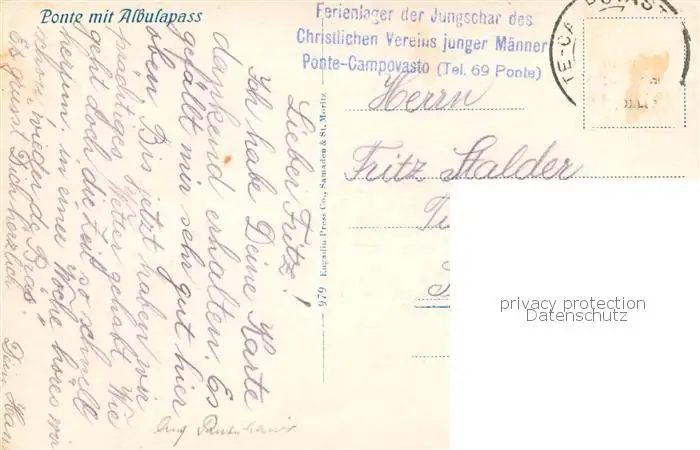 Ponte mit Albulapass
Ferienlager der Jungschar des
Christlichen Vereins junger Männer
Ponte-Campovasto (Tel. 69 Ponte)
Herrn
Fritz Stalder
979 Engadin Press Co., Samaden & St. Moritz
Lieber Fritz!
Ich habe Deine Karte
dankend erhalten. Es
gefällt mir sehr gut hier
oben. Bis jetzt haben wir
prächtiges Wetter gehabt. Wie
geht doch die Zeit so schnell
herum. in einer Woche
schon wieder
Es grüsst Dich herzlich
Dein Hans
privacy protection
Datenschutz